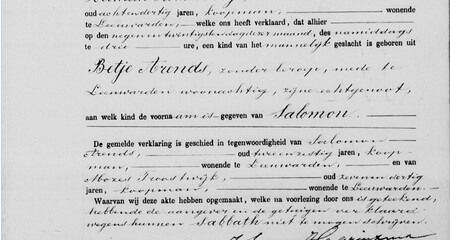 oud achtendertig jaren, koopman, wonende
te Leeuwarden, welke ons heeft verklaard, dat alhier
op den negenentwintigsten dezer maand, des namiddags
te drie ure, een kind van het mannelijk geslacht is geboren uit
Betje Arends, zonder beroep, mede te
Leeuwarden woonachtig, zijne echtgenoot,
aan welk kind de voornaam is gegeven van Salomon.
De gemelde verklaring is geschied in tegenwoordigheid van Salomon
Arends, oud tweeenzestig jaren, koop-
man, wonende te Leeuwarden, en van
Mozes Troostwijk, oud zevenendertig
jaren, koopman, wonende te Leeuwarden.
Waarvan wij deze akte hebben opgemaakt, welke na voorlezing door ons is geteekend,
hebbende de aangever en de getuigen verklaard
wegens hunnen Sabbath niet te mogen schrijven.